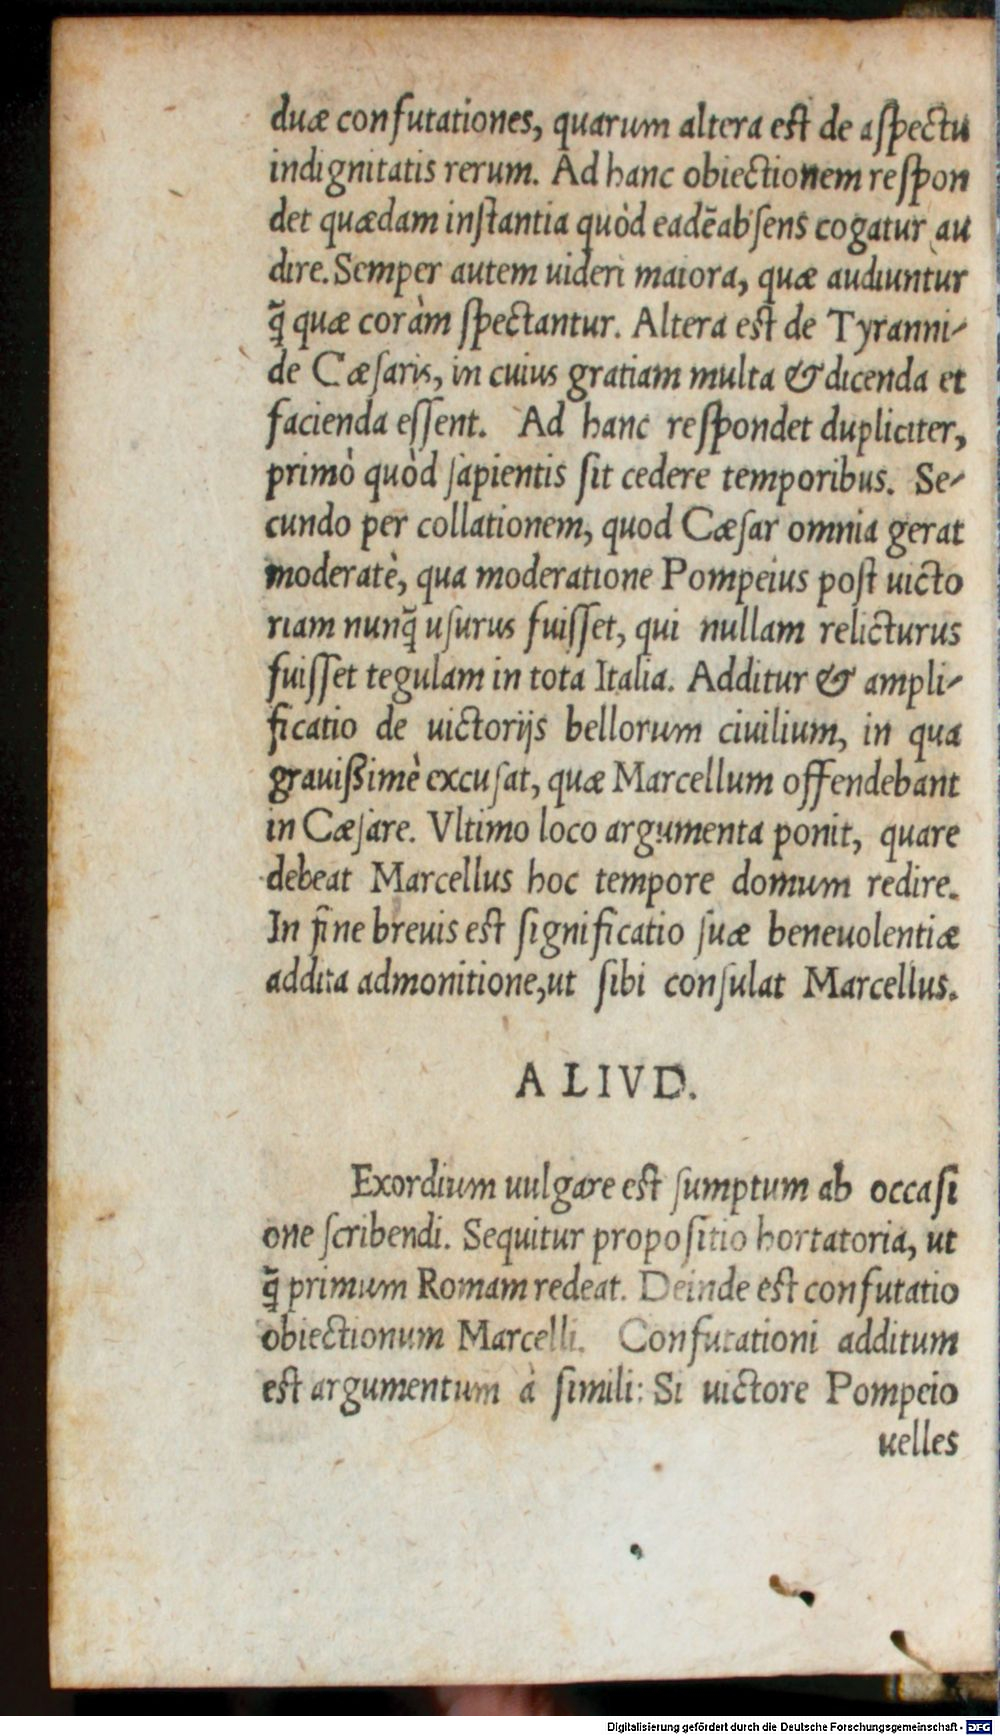 duæ confutationes, quarum altera est de aspectu
indignitatis rerum. Ad hanc obiectionem respon
det quædam instantia quòd eadē absens cogatur au
dire. Semper autem uideri maiora, quæ audiuntur
q̃ quæ coràm spectantur. Altera est de Tyranni-
de Cæsaris, in cuius gratiam multa & dicenda et
facienda essent. Ad hanc respondet dupliciter,
primò quòd sapientis sit cedere temporibus. Se-
cundo per collationem, quod Cæsar omnia gerat
moderatè, qua moderatione Pompeius post uicto
riam nunq̃ usurus fuisset, qui nullam relicturus
fuisset tegulam in tota Italia. Additur & ampli-
ficatio de uictorijs bellorum ciuilium, in qua
grauißimè excusat, quæ Marcellum offendebant
in Cæsare. Vltimo loco argumenta ponit, quare
debeat Marcellus hoc tempore domum redire.
In fine breuis est significatio suæ beneuolentiæ
addita admonitione, ut sibi consulat Marcellus.
ALIVD.
Exordium uulgare est sumptum ab occasi
one scribendi. Sequitur propositio hortatoria, ut
q̃ primum Romam redeat. Deinde est confutatio
obiectionum Marcelli. Confutationi additum
est argumentum à simili: Si uictore Pompeio
uelles
Digitalisierung gefördert durch die Deutsche Forschungsgemeinschaft - DFG